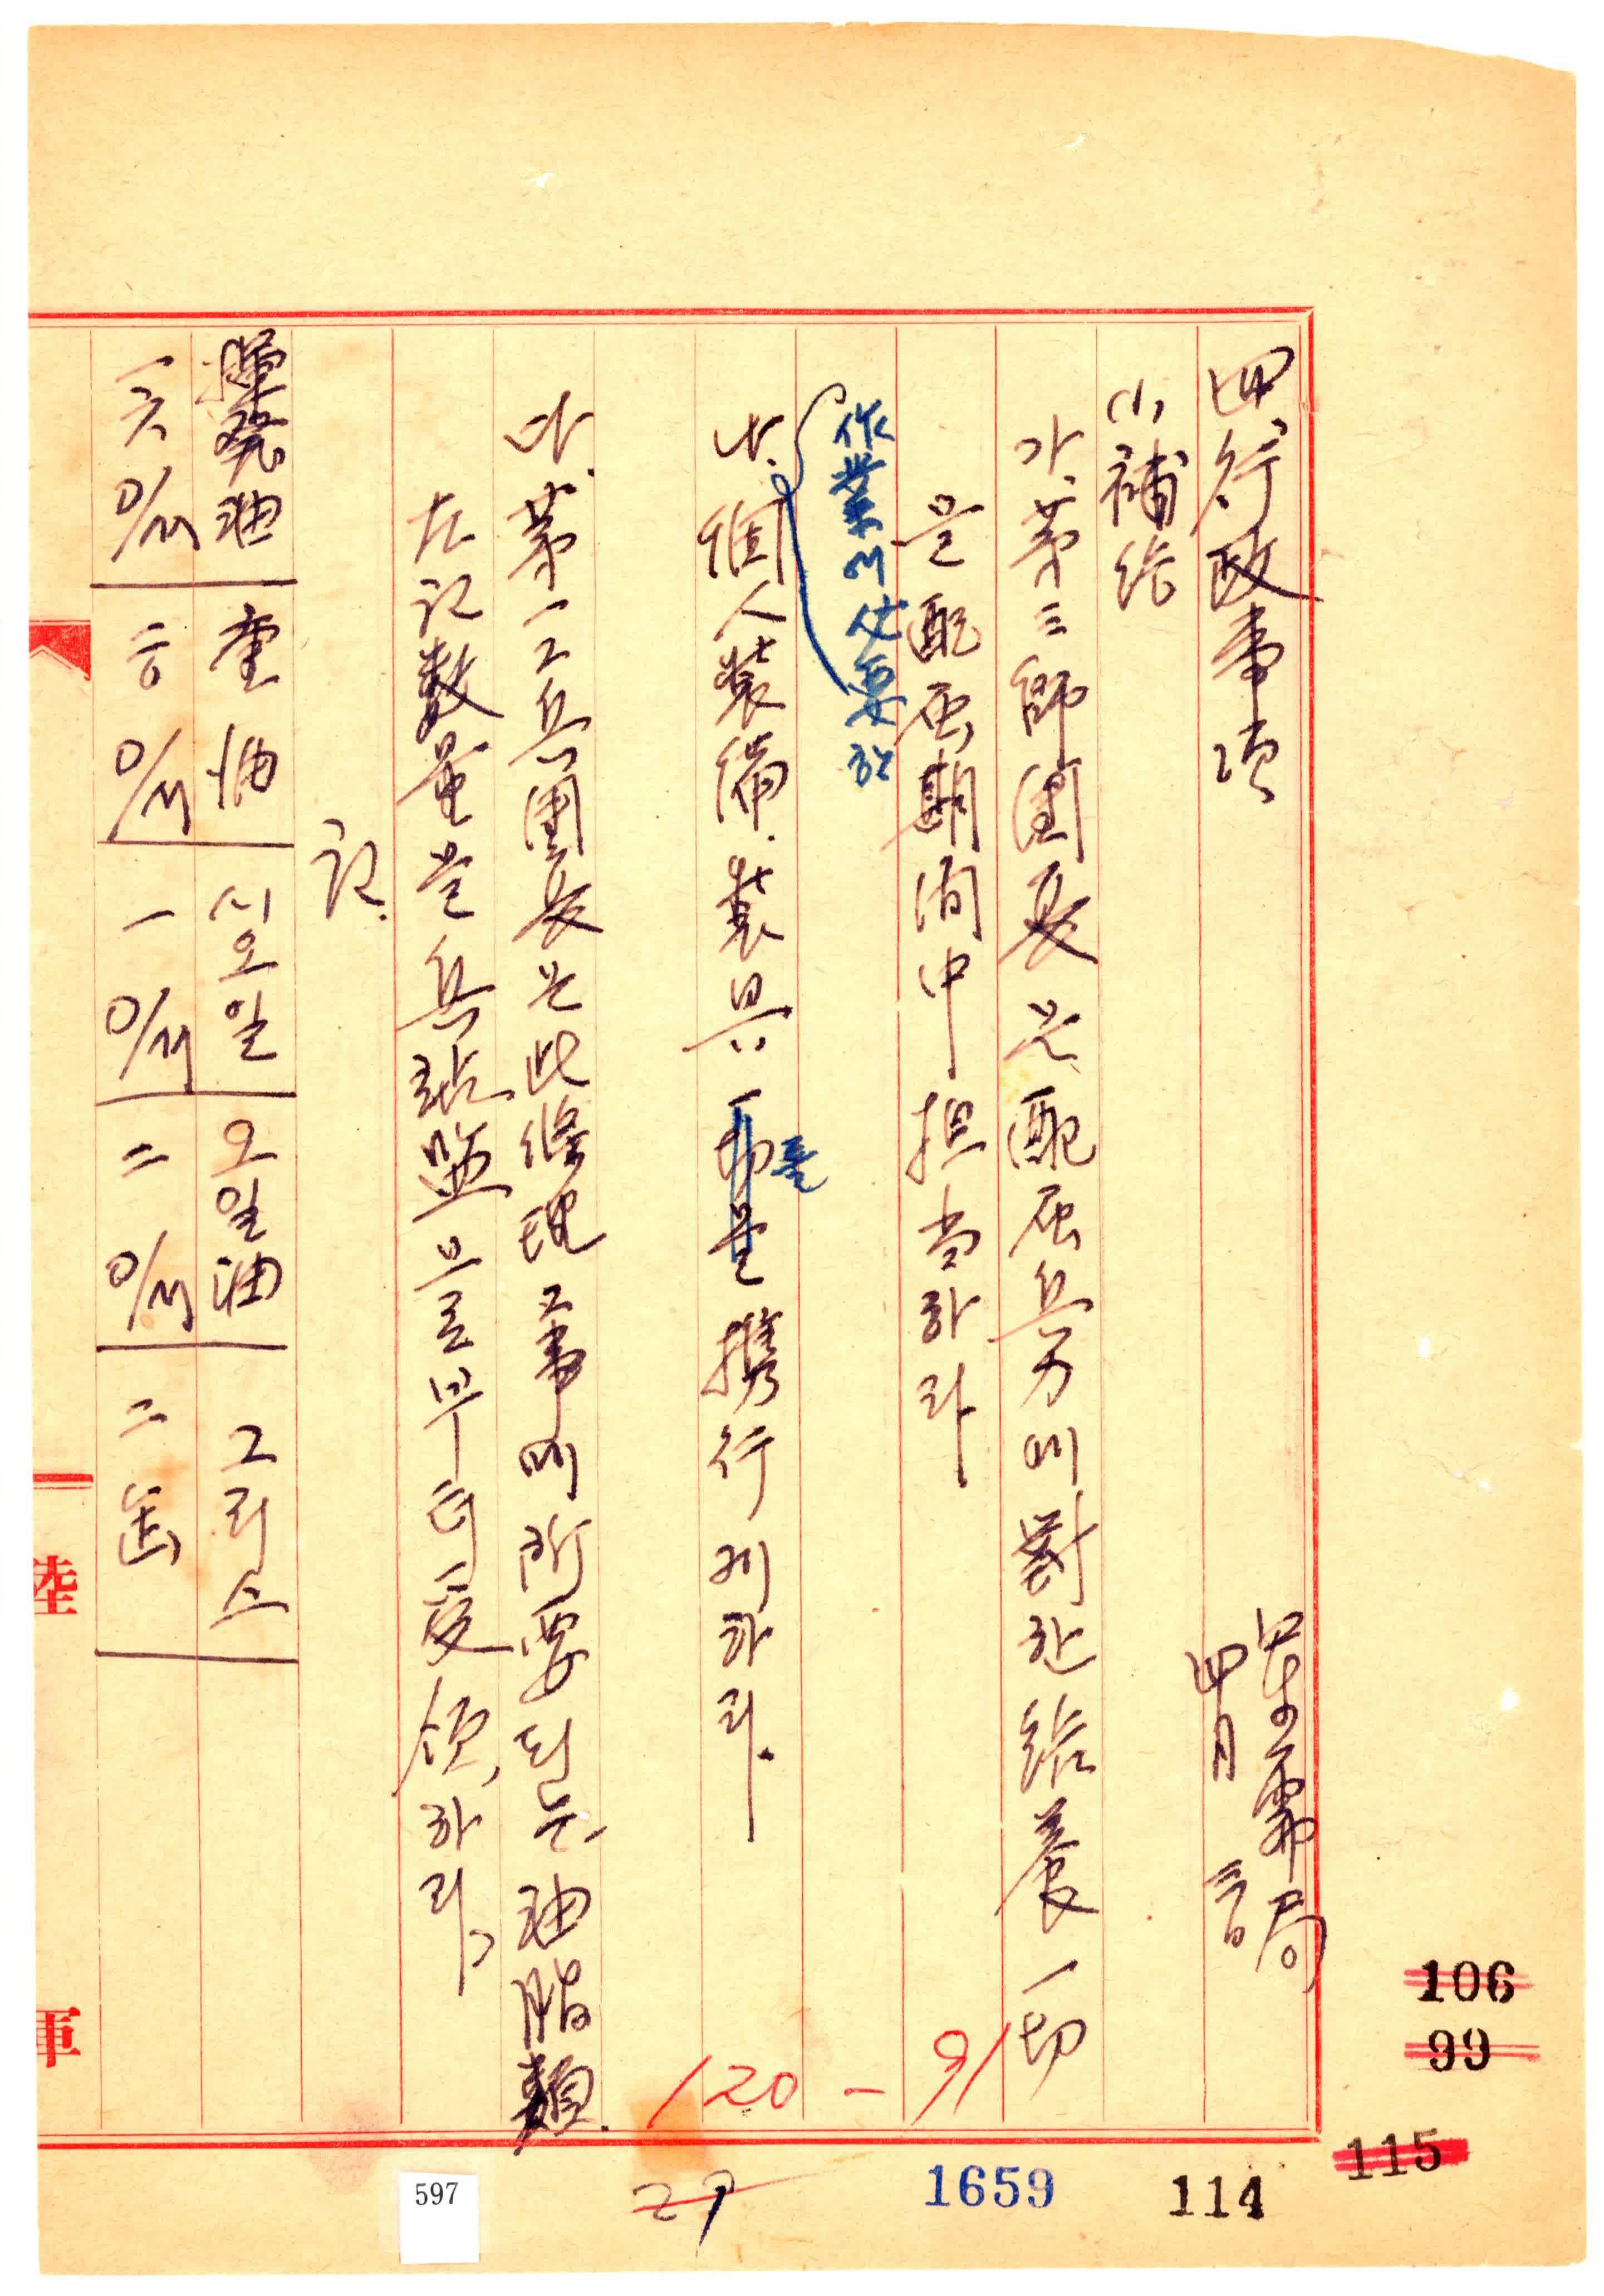 四、行政事項
四月 三日
(1) 補給
가. 第三師團長은 配屈兵力에 對한 給養 一切
을 配屈期间中 担当하라
作業에 必要한
나. 個人裝備. 裝具
를
携行케하라.
다. 第一工兵團長은 此 修理工事에 所要되는 油脂類.
左記数量을 兵站監으로부터 受領하라.
記.
揮発油 重油 모오일 오일油 그리스
一六 D/M 三〇 D/M 一 D/M 二 D/M 二 缶
陸
軍
120 - 91
106
99
115
114
1659
29
597